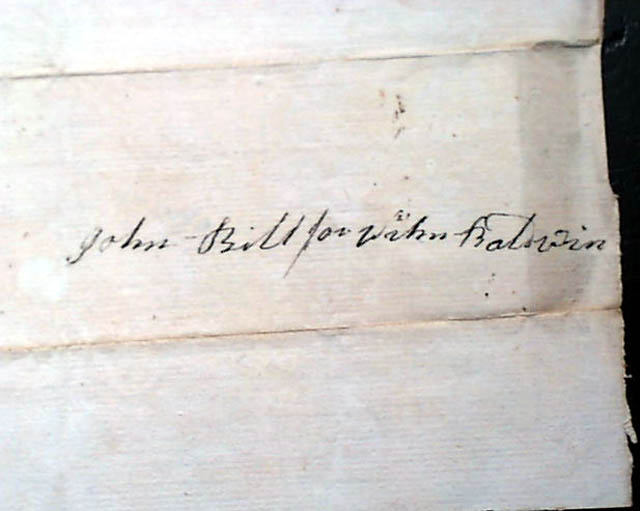 John Bill for John Baldwin